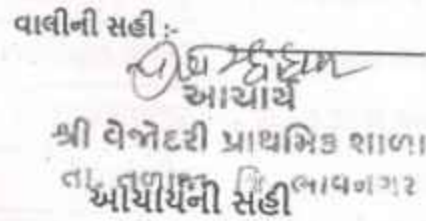 વાલીની સહી :-
આચાર્ય
શ્રી વેજોદરી પ્રાથમિક શાળા
તા. તળાજા જિ. ભાવનગર
આચાર્યની સહી